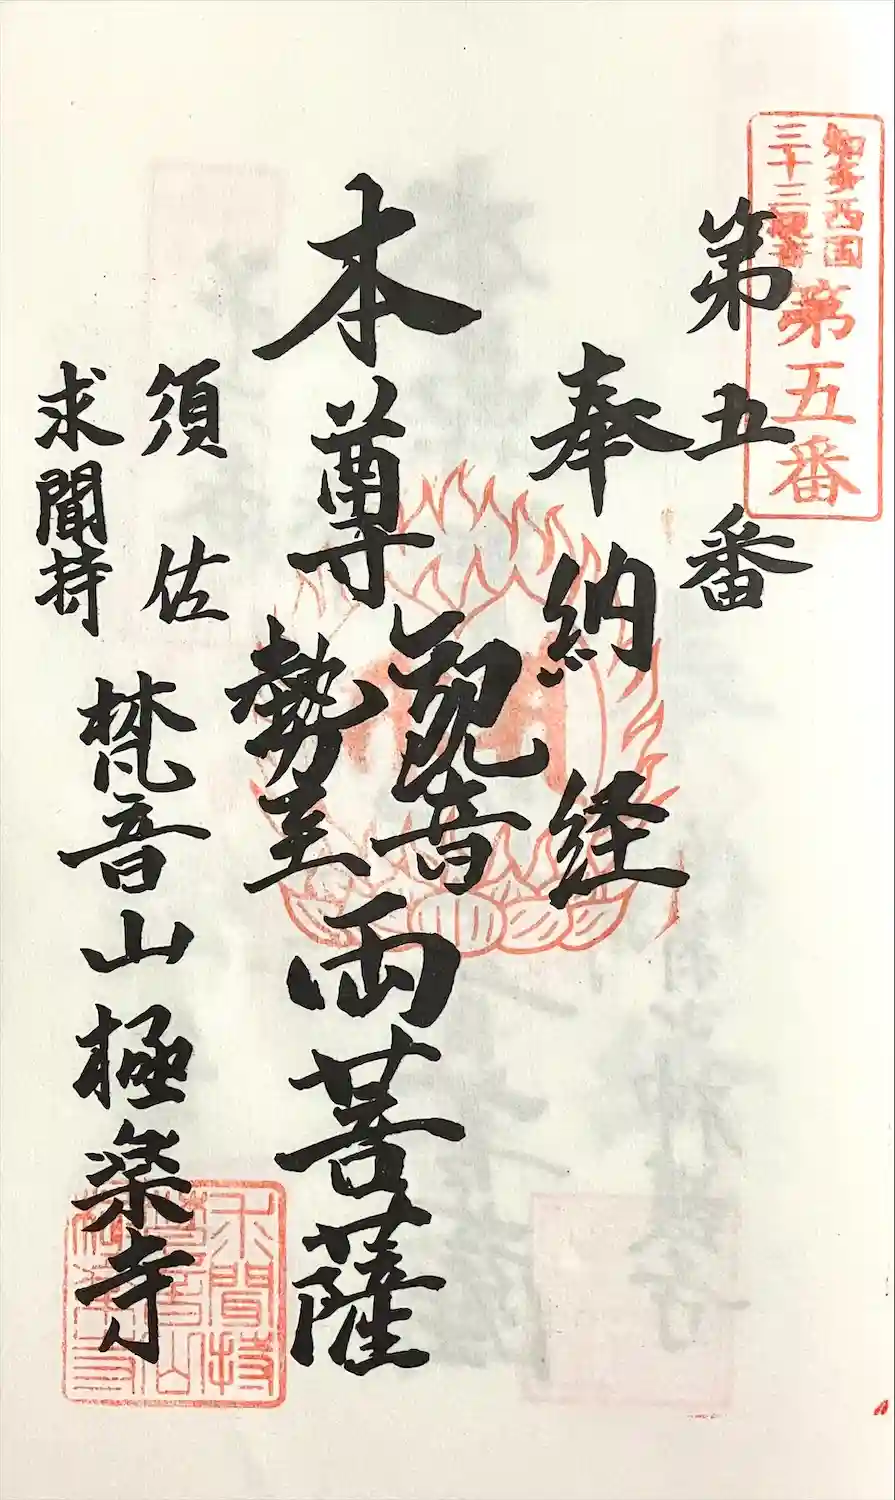 知多西国
三十三観音
第五番
第五番
奉納経
本尊 観音 勢至 両菩薩
須佐
求聞持
梵音山極楽寺
求聞持
梵音山
極楽寺